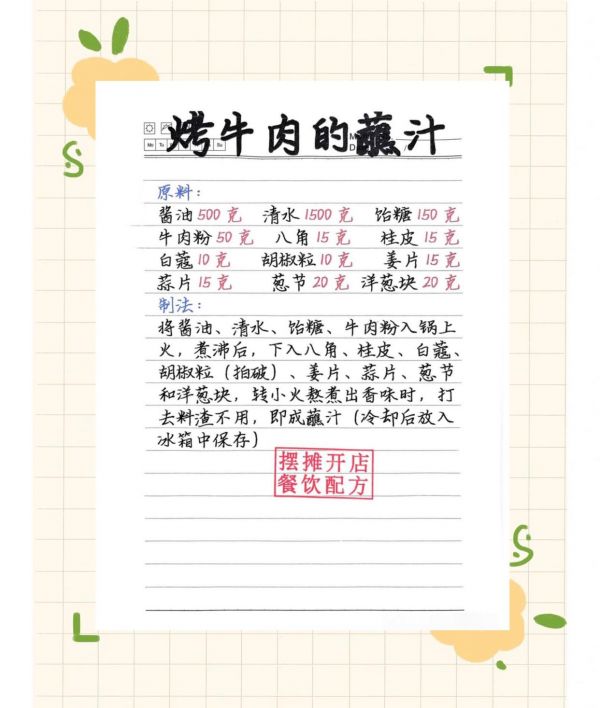 烤牛肉的蘸汁
原料：
酱油 500 克 清水 1500 克 饴糖 150 克
牛肉粉 50 克 八角 15 克 桂皮 15 克
白蔻 10 克 胡椒粒 10 克 姜片 15 克
蒜片 15 克 葱节 20 克 洋葱块 20 克
制法：
将酱油、清水、饴糖、牛肉粉入锅上
火，煮沸后，下入八角、桂皮、白蔻、
胡椒粒（拍破）、姜片、蒜片、葱节
和洋葱块，转小火熬煮出香味时，打
去料渣不用，即成蘸汁（冷却后放入
冰箱中保存）
摆摊开店
餐饮配方